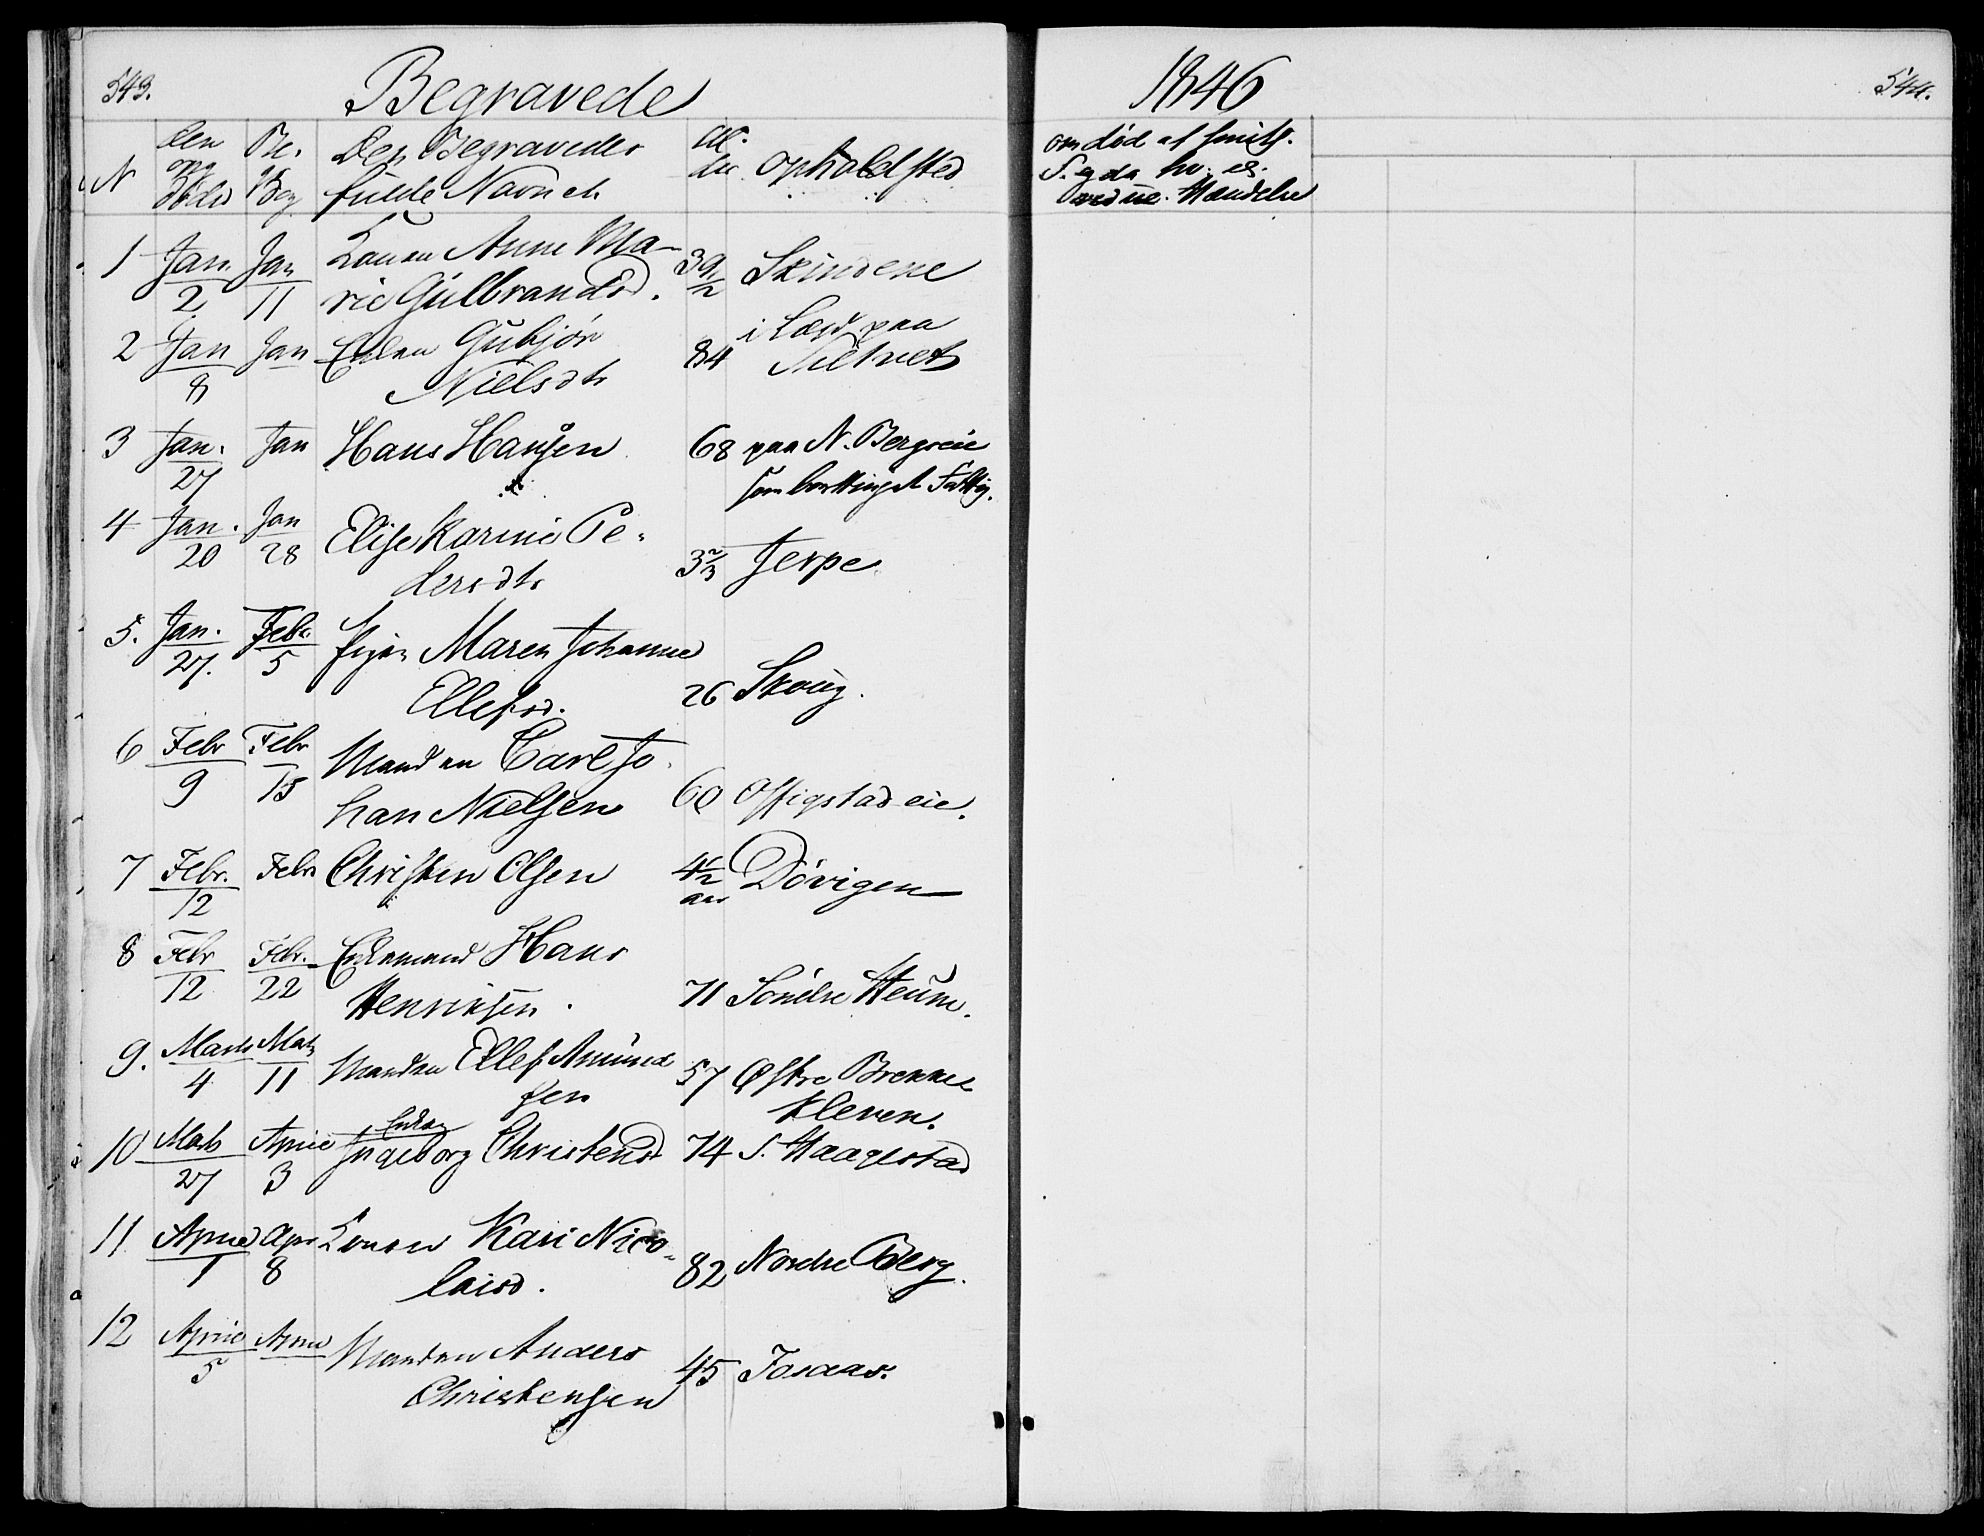 543.
Begravede
1846
544.
N
den
Dødsd
Be.
Beg.
Den Begravedes
fulde Navn etc
Al-
der
Opholdsted
om død af smits.
S. og da hv. el.
ved ue. Hændelse
1 Jan. 2 Jan 11 Konen Anne Ma-
rie Gulbrandsd. 39 1/2 Skindene
2 Jan 8 Jan Enken Gubjør
Nielsdtr 84 i Lægd paa
3 Jan. 27 Jan Hans Hansen 68 paa N. Bergseie
som bortsinget Fattig.
4 Jan. 20 Jan 28 Elise Karine Pe-
dersdtr 3 2/3 Jerpe
5. Jan. 27. Febr. 5 Pigen Maren Johanne
Ellefsd. 26 Skoug.
6 Febr 9 Febr 15 Manden Carl Jo-
han Nielsen 60 Offigstadeie.
7 Febr. 12 Febr Christen Olsen 4 1/2 aar Døvigen
8 Febr 12 Febr. 22 Enkemand Hans
Henriksen. 71 Søndre Heum.
9. Marts 4 Marts 11 Manden Ellef Amund
sen 57 Østre Brekke
Kleven.
10 Marts 27 April 3 Enken
Ingeborg Christensd 74 S. Haagestad
11 April 1 Apr 8 Konen Kari Nico-
laisd. 82 Nordre Berg.
12 April 5 April Manden Anders
Christensen 45 Josaas.